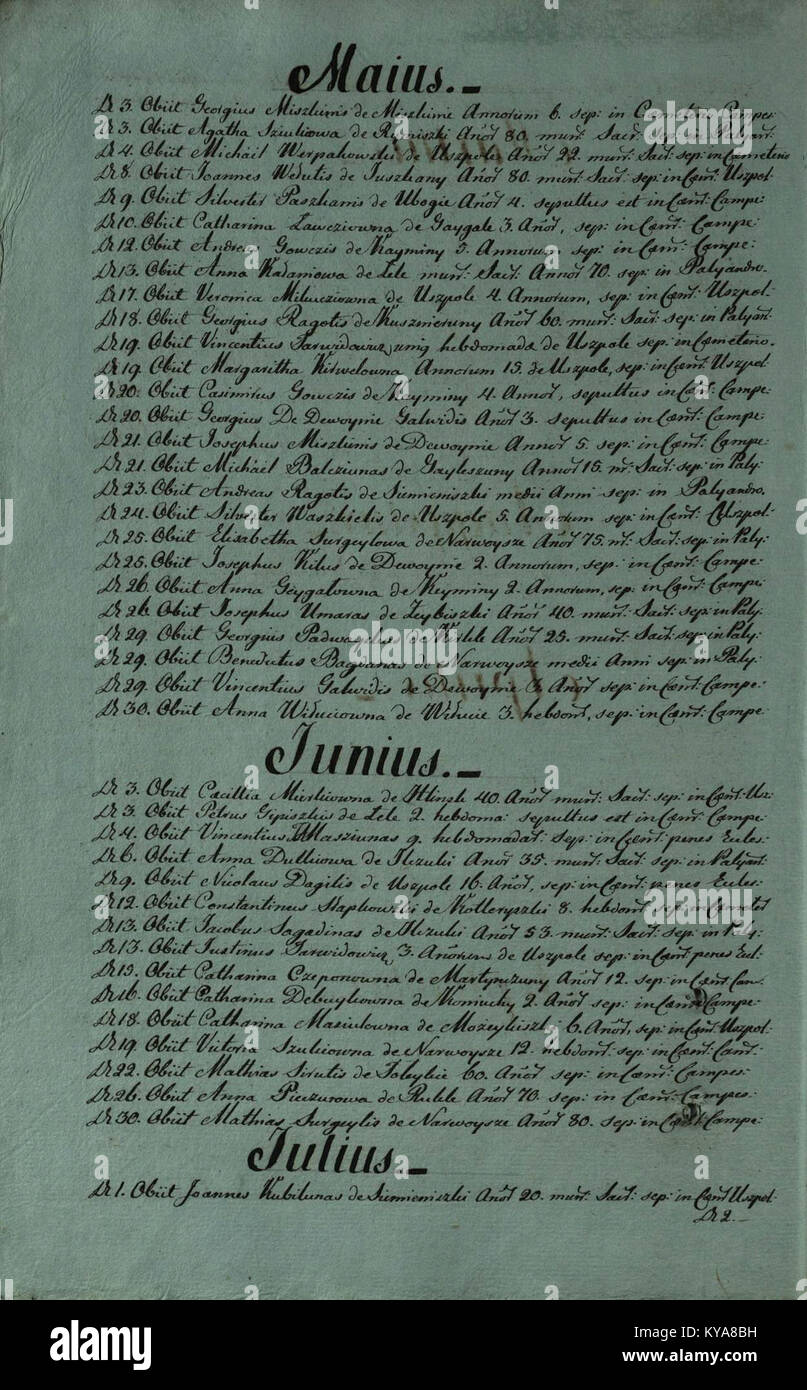 Maius.-
D 3. Obiit Georgius Miszkinis de Miszkinie Annorum 6. sep: in Cœmeterio Campes:
D 3. Obiit Agatha Sziukiowa de Anor̃ 80. mun̄: Sacr̄: sep: in Palyan̄:
D 4. Obiit Michäel Werpakowski de Uszpole Anor̃ 22. mun̄: Sacr̄: sep: in Cæmeterio
D 8. Obiit Joannes Wedutis de Juszkany Anor̃ 80. mun̄: Sacr̄: sep: in Cœm̄: Uszpol:
D 9. Obiit Silvester Paszkanis de Ubogie Anor̃ 4. sepultus est in Cœm̄: Campe:
D 10. Obiit Catharina Lawcziowna de Gaygale 3. Anor̃, sep: in Cœm̄: Campe:
D 12. Obiit Andreas Gowczis de Kayminy 5. Annorum sep: in Cœm̄: Campe:
D 13. Obiit Anna Kadaniowa de Lele mun̄: Sacr̄: Annor̃ 70. sep: in Palyandro.
D 17. Obiit Veronica Milwcziowna de Uszpole 4. Annorum, sep: in Cœm̄: Uszpol:
D 18. Obiit Georgius Ragotis de Kuszneruny Anor̃ 60. mun̄: Sacr̄: sep: in Palyan̄:
D 19. Obiit Vincentius Jarwidowicz unius hebdomadæ de Uszpole sep: in Cœmeterio.
D 19. Obiit Margaritha Kirwelowna Annorum 15. de Uszpole, sep: in Cœm̄: Uszpol
D 20. Obiit Casimirus Gowczis de Keyminy 4. Annor̃, sepultus in Cœm̄: Campe:
D 20. Obiit Georgius De Dewoynie Galwidis Anor̃ 3. sepultus in Cœm̄: Campe:
D 21. Obiit Josephus Miszkinis de Dewoynie Annor̃ 5. sep: in Cœm̄: Campe:
D 21. Obiit Michäel Balcziunas de Gayleszuny Annor̃ 15. m̄: Sacr̄: sep: in Paly:
D 23. Obiit Andreas Ragotis de Siemieniszki medii Anni sep: in Palyandro.
D 24. Obiit Silvester Waszkielis de Uszpole 5. Annorum sep: in Cœm̄: Uszpol:
D 25. Obiit Elisabetha Surgeylowa de Narwoysze Anor̃ 75. m̄: Sacr̄: sep: in Paly:
D 25. Obiit Josephus Kilus de Dewoynie 2. Annorum, sep: in Cœm̄: Campe:
D 26. Obiit Anna Geygalowna de Keyminy 2. Annorum, sep: in Cœm̄: Campe:
D 26. Obiit Josephus Umaras de Leybiszki Anor̃ 40. mun̄: Sacr̄: sep: in Paly:
D 29. Obiit Georgius de Rukle Anor̃ 25. mun̄: Sacr̄: sep: in Paly:
D 29. Obiit Benedictus Bagdanas de Narwoysze medii Anni sep: in Paly:
D 29. Obiit Vincentius Galwidis de Dewoynie 3. Anor̃ sep: in Cœm̄: Campe:
D 30. Obiit Anna Wiluciowna de Wilucie 3. hebdom̄, sep: in Cœm̄: Campe:
Junius.-
D 3. Obiit Cæcilia de 40. Anor̃ mun̄: Sacr̄: sep: in Cœm̄: Us:
D 3. Obiit Petrus Gipiszkis de Lele 2. hebdoma: sepultus est in Cœm̄: Campe:
D 4. Obiit Vincentius 9. hebdomadar̃: sep: in Cœm̄: penes Ecles:
D 6. Obiit Anna Dulkiowa de Ilzuki Anor̃ 35. mun̄: Sacr̄: sep: in Palyan̄:
D 9. Obiit Nicolaus Dagilis de Uszpole 16. Anor̃, sep: in Cœm̄: penes Ecles:
D 12. Obiit Constantinus Slapkowski de Kotleryszki 8. hebdom̄ sep: in Cæmeter̃
D 13. Obiit Jacobus Sagadinas de Ilzuki Anor̃ 53. mun̄: Sacr̄: sep: in Paly:
D 13. Obiit Justinus Jarwidowicz 3. Anorum de Uszpole sep: in Cœm̄: penes Ecl:
D 15. Obiit Catharina Czeponowna de Martynczuny Anor̃ 12. sep: in Cœm̄: Cam.
D 16. Obiit Catharina Debeykowna de Koniuchy 2. Anor̃ sep: in Cœm̄: Campe:
D 18. Obiit Catharina Masiulowna de Mozeykiszki 6. Anor̃, sep: in Cœm̄: Uszpol:
D 19. Obiit Victoria Szukiowna de Narwoysze 12. hebdom̄: sep: in Cœm̄: Cam̄:
D 22. Obiit Mathias Sirutis de 60. Anor̃ sep: in Cœm̄: Campes:
D 26. Obiit Anna Pieczurowa de Rukle Anor̃ 70. sep: in Cœm̄: Campes:
D 30. Obiit Mathias Surgeylis de Narwoysze Anor̃ 80. sep: in Cœm̄: Campe:
Julius-
D 1. Obiit Joannes Kubilunas de Siemieniszki Anor̃ 20. mun̄: Sacr̄: sep: in Cœm̄ Uszpol:
D 2.-
alamy
Image ID: KYA8BH
www.alamy.com